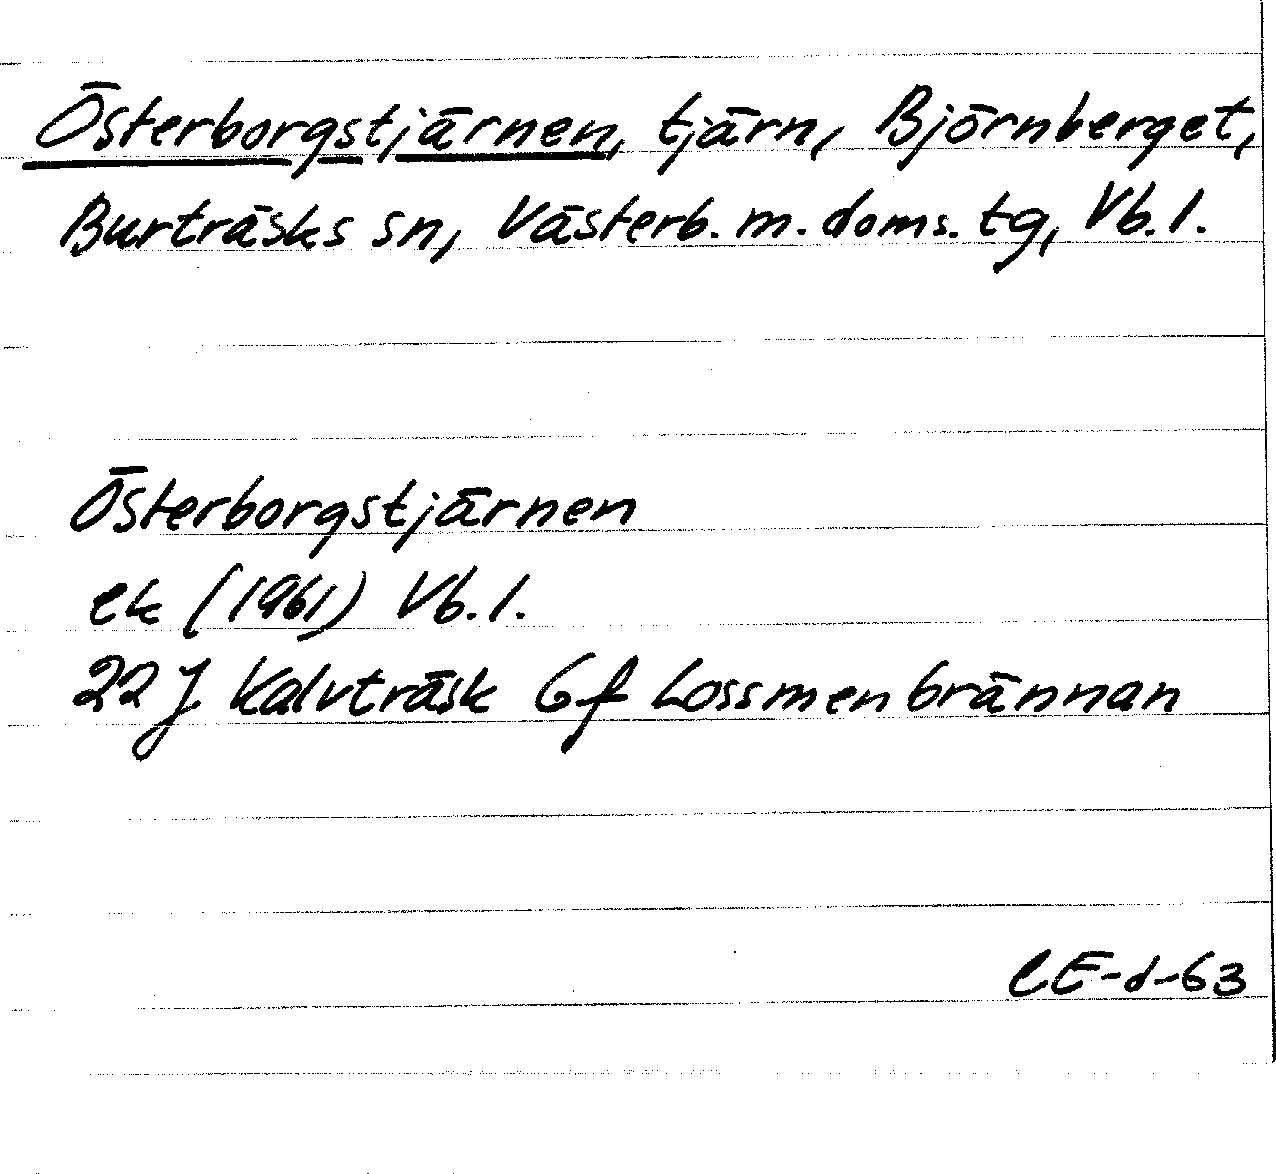 Österborgstjärnen, tjärn, Björnberget,
Burträsks sn, Västerb. m. doms. tg, Vb. l.
Österborgstjärnen
ek (1961) Vb. l.
22 J Kalvträsk 6f Lossmenbrännan
CE-d-63